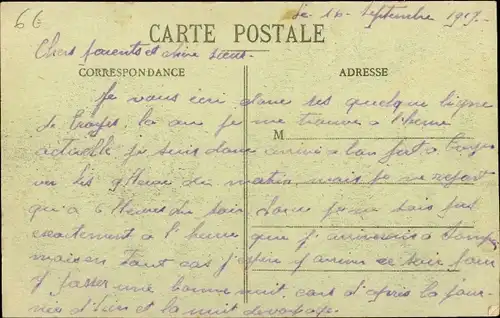 66
le 16 Septembre 1917.
CARTE POSTALE
Chers parents et chère Sœur.
CORRESPONDANCE
ADRESSE
Je vous écri donc ses quelque ligne
de Troyes. la ou je me trouve a l'heure
M
actuelle je suis donc arrivé a bon port a Troyes
ver les 9 Heure du matin, mais je ne repart
qu'a 6 Heures du soir, donc je ne sais pas
exactement a l'heure que j'arriverais a
maison tout cas j'espère y arriver ce soir pour
y passer une bonne nuit. cars d'après la jour-
née d'hier et la nuit de voyage.